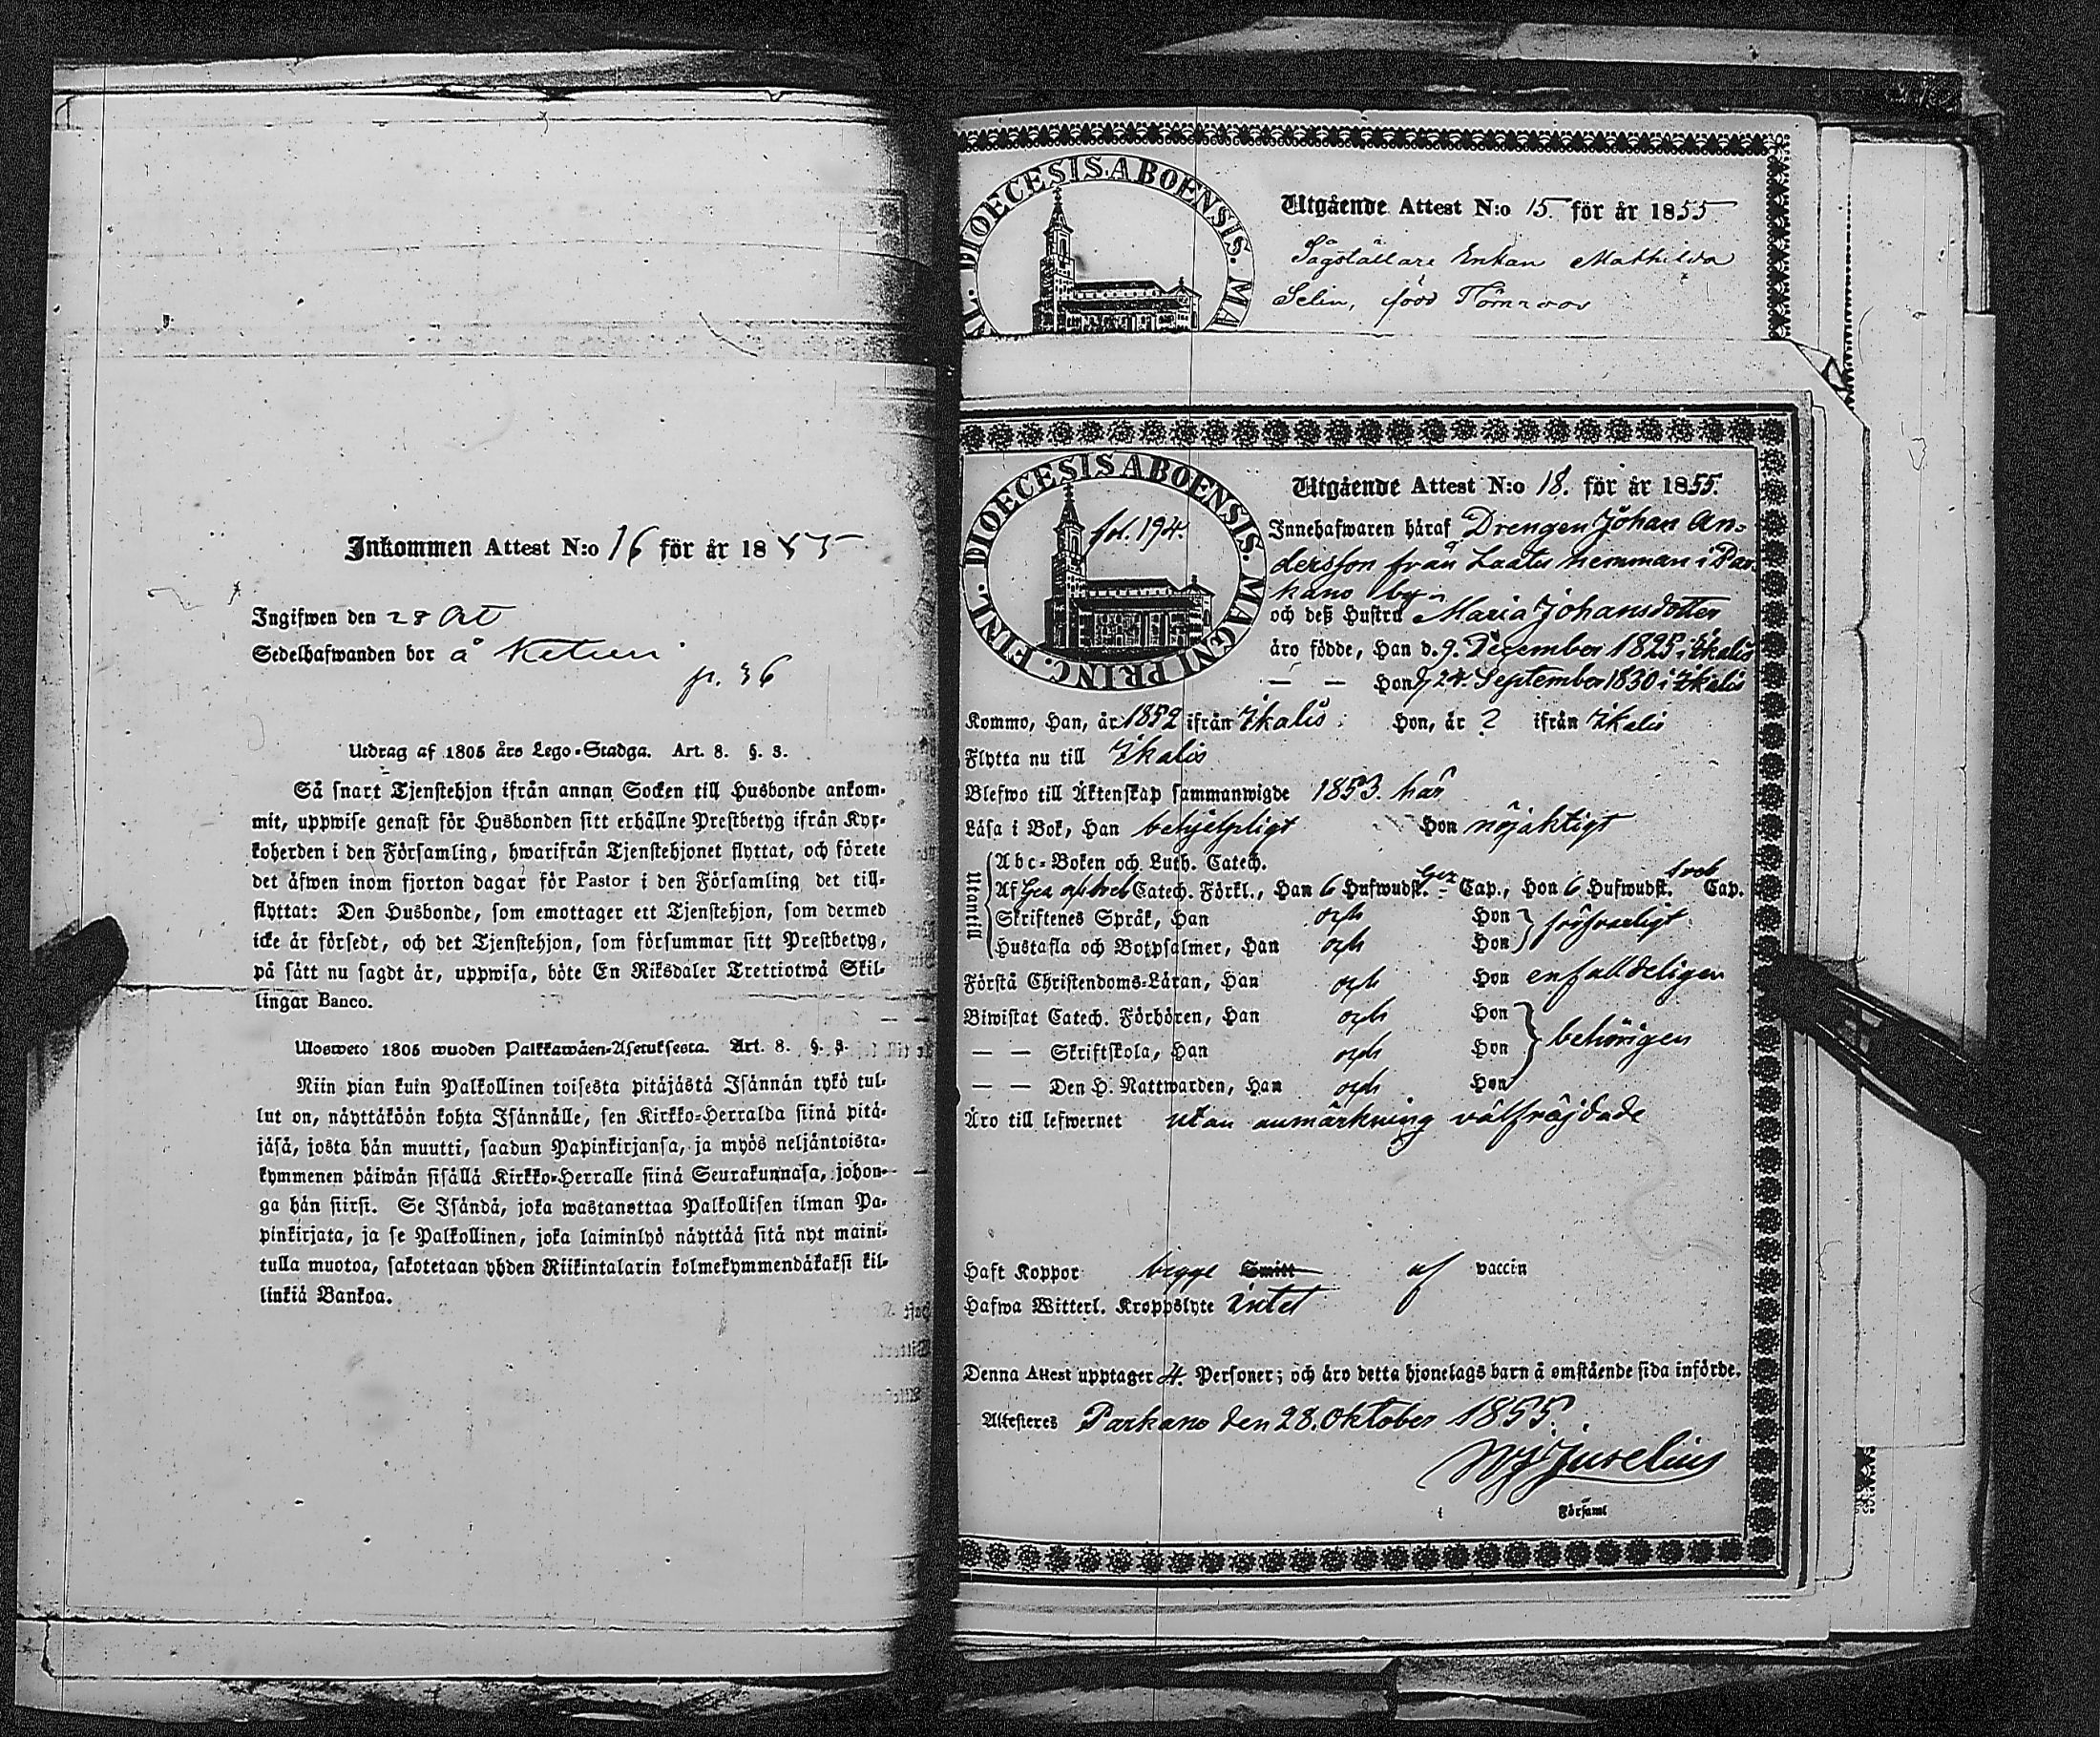 Inkommen Attest N:o 16 för år 1855
Ingifwen den 28 Oct
Sedelhafwanden bor å
p. 36
Utdrag af 1805 års Lego-Stadga. Art. 8. §. 3.
Så snart Tjenstehjon ifrån annan Socken till Husbonde ankom-
mit, uppwise genast för Husbonden sitt erhållne Prestbetyg ifrån Kyr-
koherden i den Församling, hwarifrån Tjenstehjonet flyttat, och förete
det äfwen inom fjorton dagar för Pastor i den Församling det till-
flyttat: Den Husbonde, som emottager ett Tjenstehjon, som dermed
icke är försedt, och det Tjenstehjon, som försummar sitt Prestbetyg,
på sätt nu sagdt är, uppwisa, böte En Riksdaler Trettiotwå Skil-
lingar Banco.
Ulosweto 1805 wuoden Palkkawäen-Asetuksesta. Art. 8. §. 3.
Niin pian kuin Palkollinen toisesta pitäjästä Isännän tykö tul-
lut on, näyttäköön kohta Isännälle, sen Kirkko-Herralda siinä pitä-
jäsä, josta hän muutti, saadun Papinkirjansa, ja myös neljäntoista-
kymmenen päiwän sisällä Kirkko-Herralle siinä Seurakunnasa, johon-
ga hän siirsi. Se Isändä, joka wastanottaa Palkollisen ilman Pa-
pinkirjata, ja se Palkollinen, joka laiminlyö näyttää sitä nyt maini-
tulla muotoa, sakotetaan yhden Riikintalarin kolmekymmendäkaksi kil-
linkiä Bankoa.
FINL. DIOECESIS ABOENSIS. MA
Utgående Attest N:o 15. för år 1855
Sågställare Enkan Mathilda
Selin, född Törnroos
FINL. DIOECESIS ABOENSIS. MAGNI PRINC.
fol. 194.
Utgående Attest N:o 18. för år 1855.
Innehafwaren häraf Drengen Johan An-
dersson från Laatu hemman i Par-
kano by
och deß Hustru Maria Johansdotter
äro födde, Han d. 9. December 1825 i Ikalis
— — Hon d. 24. September 1830 i Ikalis
Kommo, Han, år 1852 ifrån Ikalis; Hon, år ? ifrån Ikalis
Flytta nu till Ikalis
Blefwo till Äktenskap sammanwigde 1853. här
Läsa i Bok, Han behjelpligt Hon nöjaktigt
Utantill
Abc-Boken och Luth. Catech.
Af Catech. Förkl., Han 6 Hufwudst. Cap., Hon 6 Hufwudst. Sveb Cap.
Skriftenes Språk, Han och Hon försvarligt
Hustafla och Botpsalmer, Han och Hon
Förstå Christendoms-Läran, Han och Hon enfalldeligen
Biwistat Catech. Förhören, Han och Hon behörigen
— — Skriftskola, Han och Hon
— — Den H. Nattwarden, Han och Hon
Äro till lefwernet utan anmärkning välfräjdade
Haft Koppor bägge Smitt af vaccin
Hafwa Witterl. Kroppslyte intet
Denna Attest upptager 4. Personer; och äro detta hjonelags barn å omstående sida införde.
Attesteres Parkano den 28. Oktober 1855.
Jurelius
i Församl